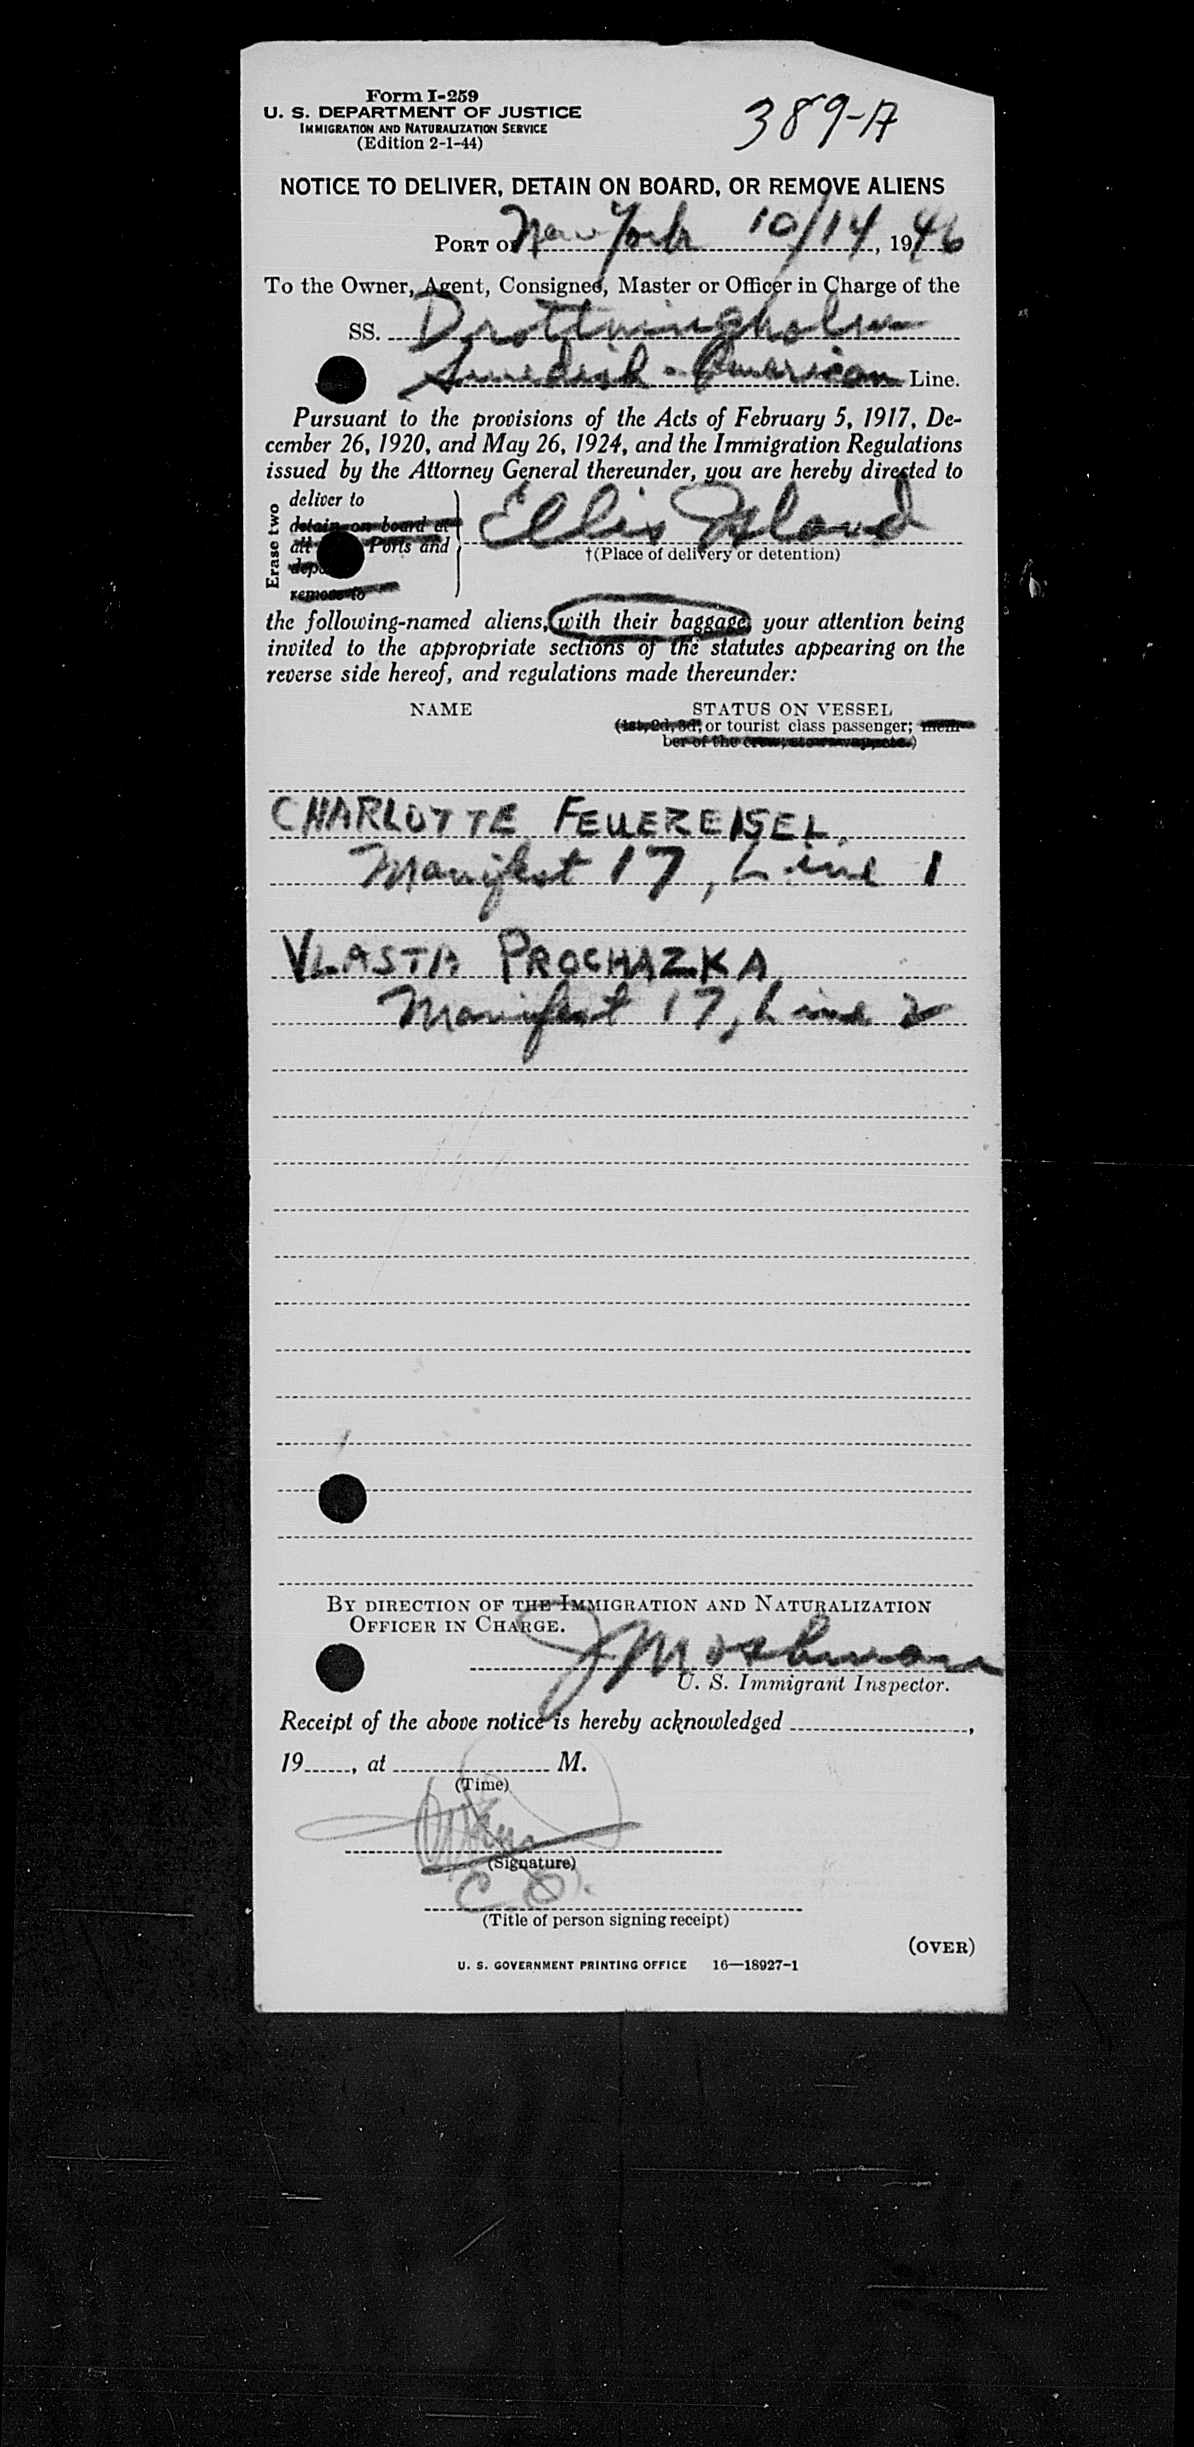 Form I-259
U. S. DEPARTMENT OF JUSTICE
IMMIGRATION AND NATURALIZATION SERVICE
(Edition 2-1-44)
389-A
NOTICE TO DELIVER, DETAIN ON BOARD, OR REMOVE ALIENS
PORT OF New York 10/14, 1946
To the Owner, Agent, Consignee, Master or Officer in Charge of the
SS. Drottningholm
Swedish-American Line.
Pursuant to the provisions of the Acts of February 5, 1917, De-
cember 26, 1920, and May 26, 1924, and the Immigration Regulations
issued by the Attorney General thereunder, you are hereby directed to
Erase two
deliver to
detain on board at
all Ports and
remove to
Ellis Island
†(Place of delivery or detention)
the following-named aliens, with their baggage, your attention being
invited to the appropriate sections of the statutes appearing on the
reverse side hereof, and regulations made thereunder:
NAME
STATUS ON VESSEL
(1st, 2d, 3d, or tourist class passenger; mem-
ber of the crew, stowaway, etc.)
CHARLOTTE FEUEREISEL
Manifest 17, Line 1
VLASTA PROCHAZKA
Manifest 17, Line 2
BY DIRECTION OF THE IMMIGRATION AND NATURALIZATION
OFFICER IN CHARGE.
J Moshman
U. S. Immigrant Inspector.
Receipt of the above notice is hereby acknowledged ,
19 , at M.
(Time)
(Signature)
C. O.
(Title of person signing receipt)
(OVER)
U. S. GOVERNMENT PRINTING OFFICE 16—18927-1